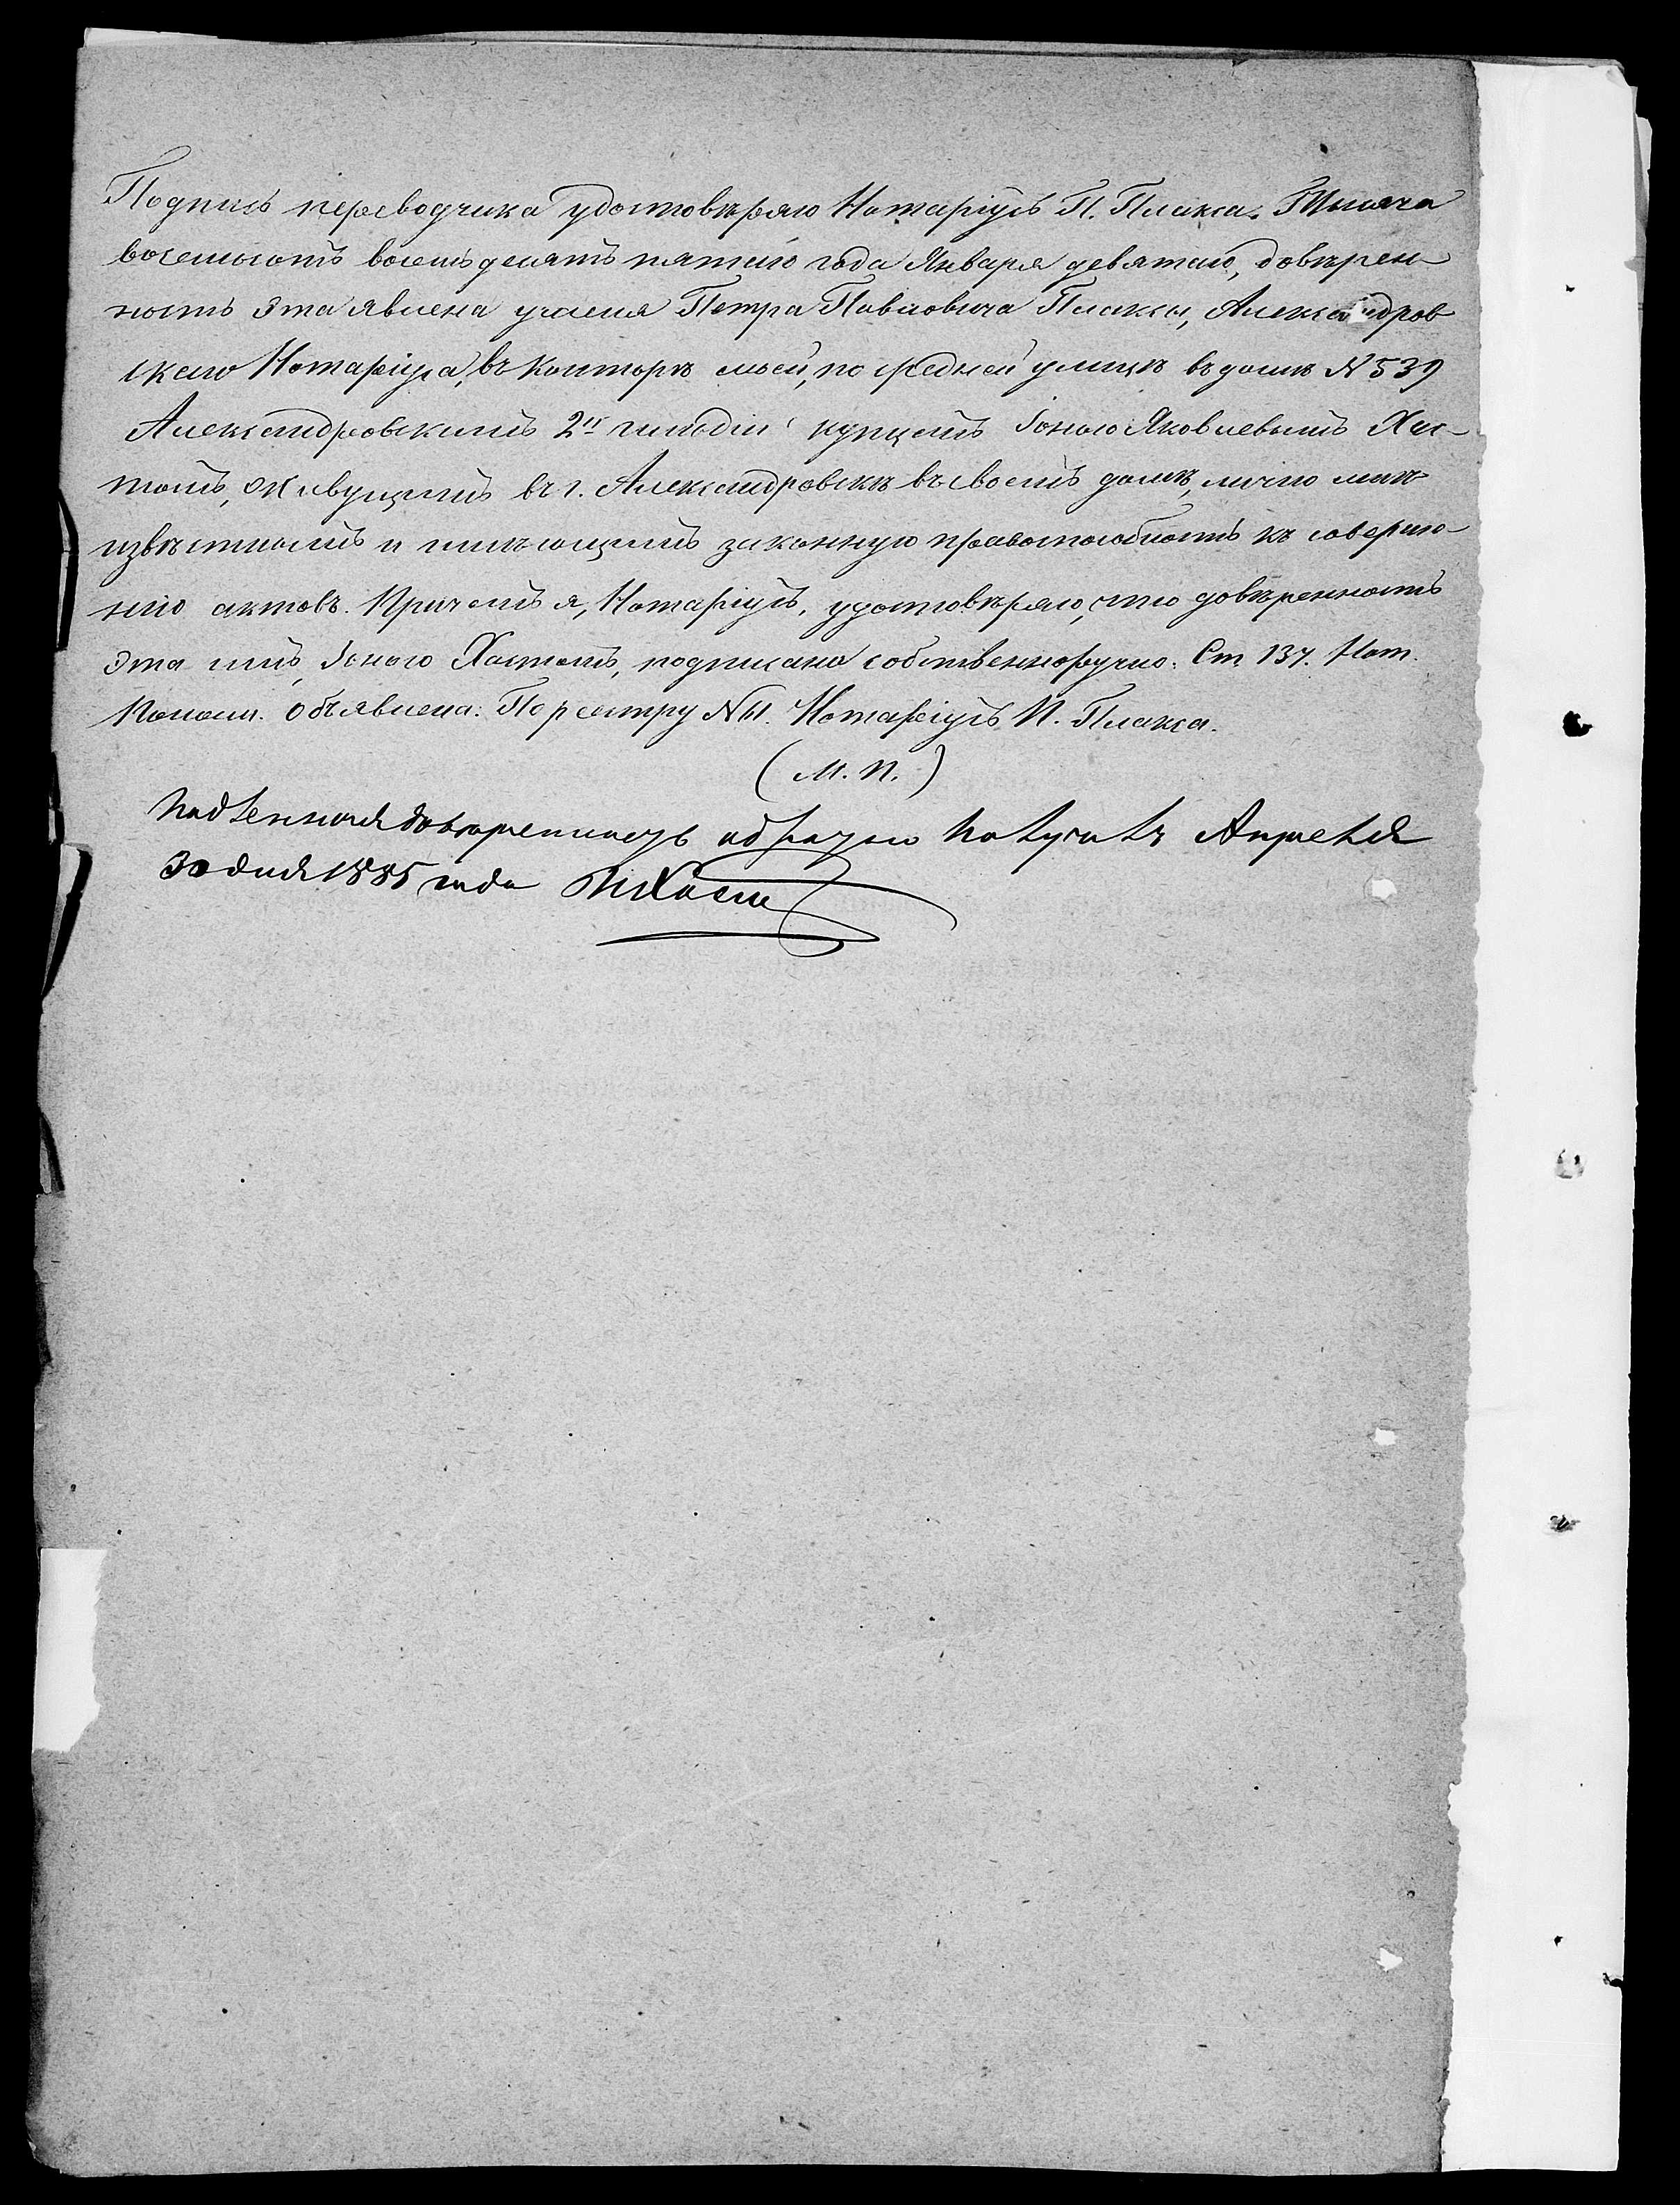 Подпись переводчика удостовѣряю Нотаріусъ П. Плакса. Тысяча
восемьсотъ восемьдесятъ пятаго года Января девятаго, довѣрен-
ность эта явлена у меня Петра Павловича Плаксы, Александров
скаго Нотаріуса, въ конторѣ моей, по средней улицѣ въ домѣ № 539
Александровскимъ 2й гильдіи купцомъ Іоною Яковлевымъ Хас-
томъ, живущимъ въ г. Александровскѣ въ своемъ домѣ, лично мнѣ
извѣстнымъ и имѣющимъ законную правоспособность къ соверше-
нію актовъ. Причемъ я, Нотаріусъ, удостовѣряю, что довѣренность
эта имъ, Іоною Хастомъ, подписана собственноручно. Ст 137. Нот.
Полож. объявлена. По реэстру №
Нотаріусъ П. Плакса.
(М. П.)
Подленная доверенность обратно получилъ Апреля
30 дня 1885 года ИХаст